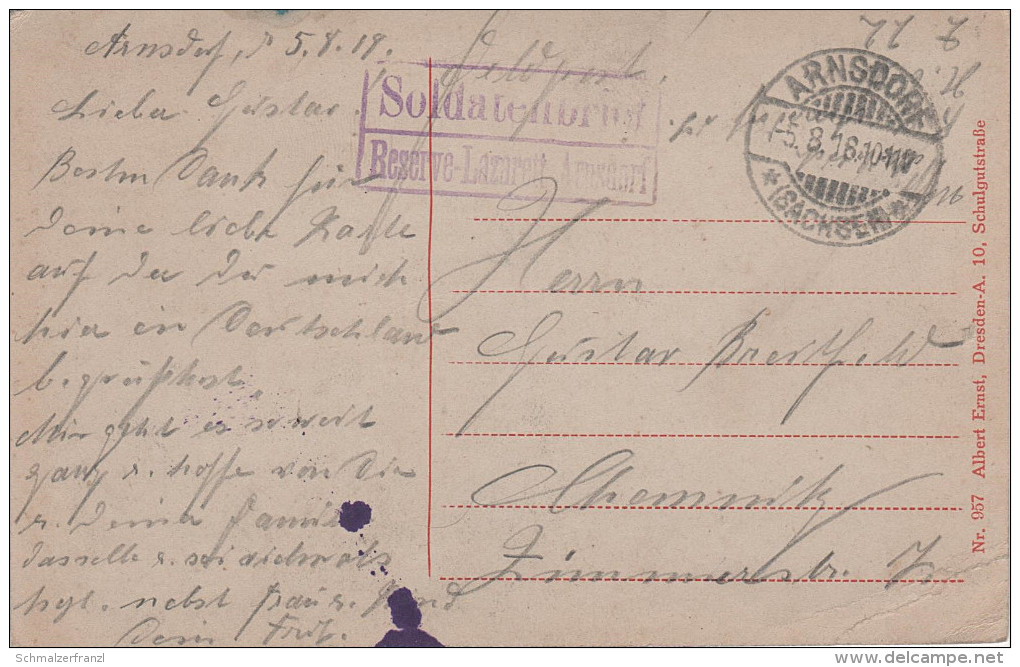 Arnsdorf, d 5.8.18.
Lieber Gustav.
Besten Dank für
Deine liebe Karte
auf der Du mich
hier in Deutschland
begrüßtest.
Mir geht es soweit
ganz u. hoffe von Dir
u. Deiner Familie
dasselbe u. sei vielmals
hrzl. nebst Frau u. Kind
Dein Fritz.
Feldpost.
Soldatenbrief
Reserve-Lazarett Arnsdorf
ARNSDORF
-5.8.18.10-11V
* (SACHSEN) *
Herrn
Gustav Breitfeld
Chemnitz
Zimmerstr.
Nr. 957 Albert Ernst, Dresden-A. 10, Schulgutstraße
Schmalzerfranzl
delcampe.net